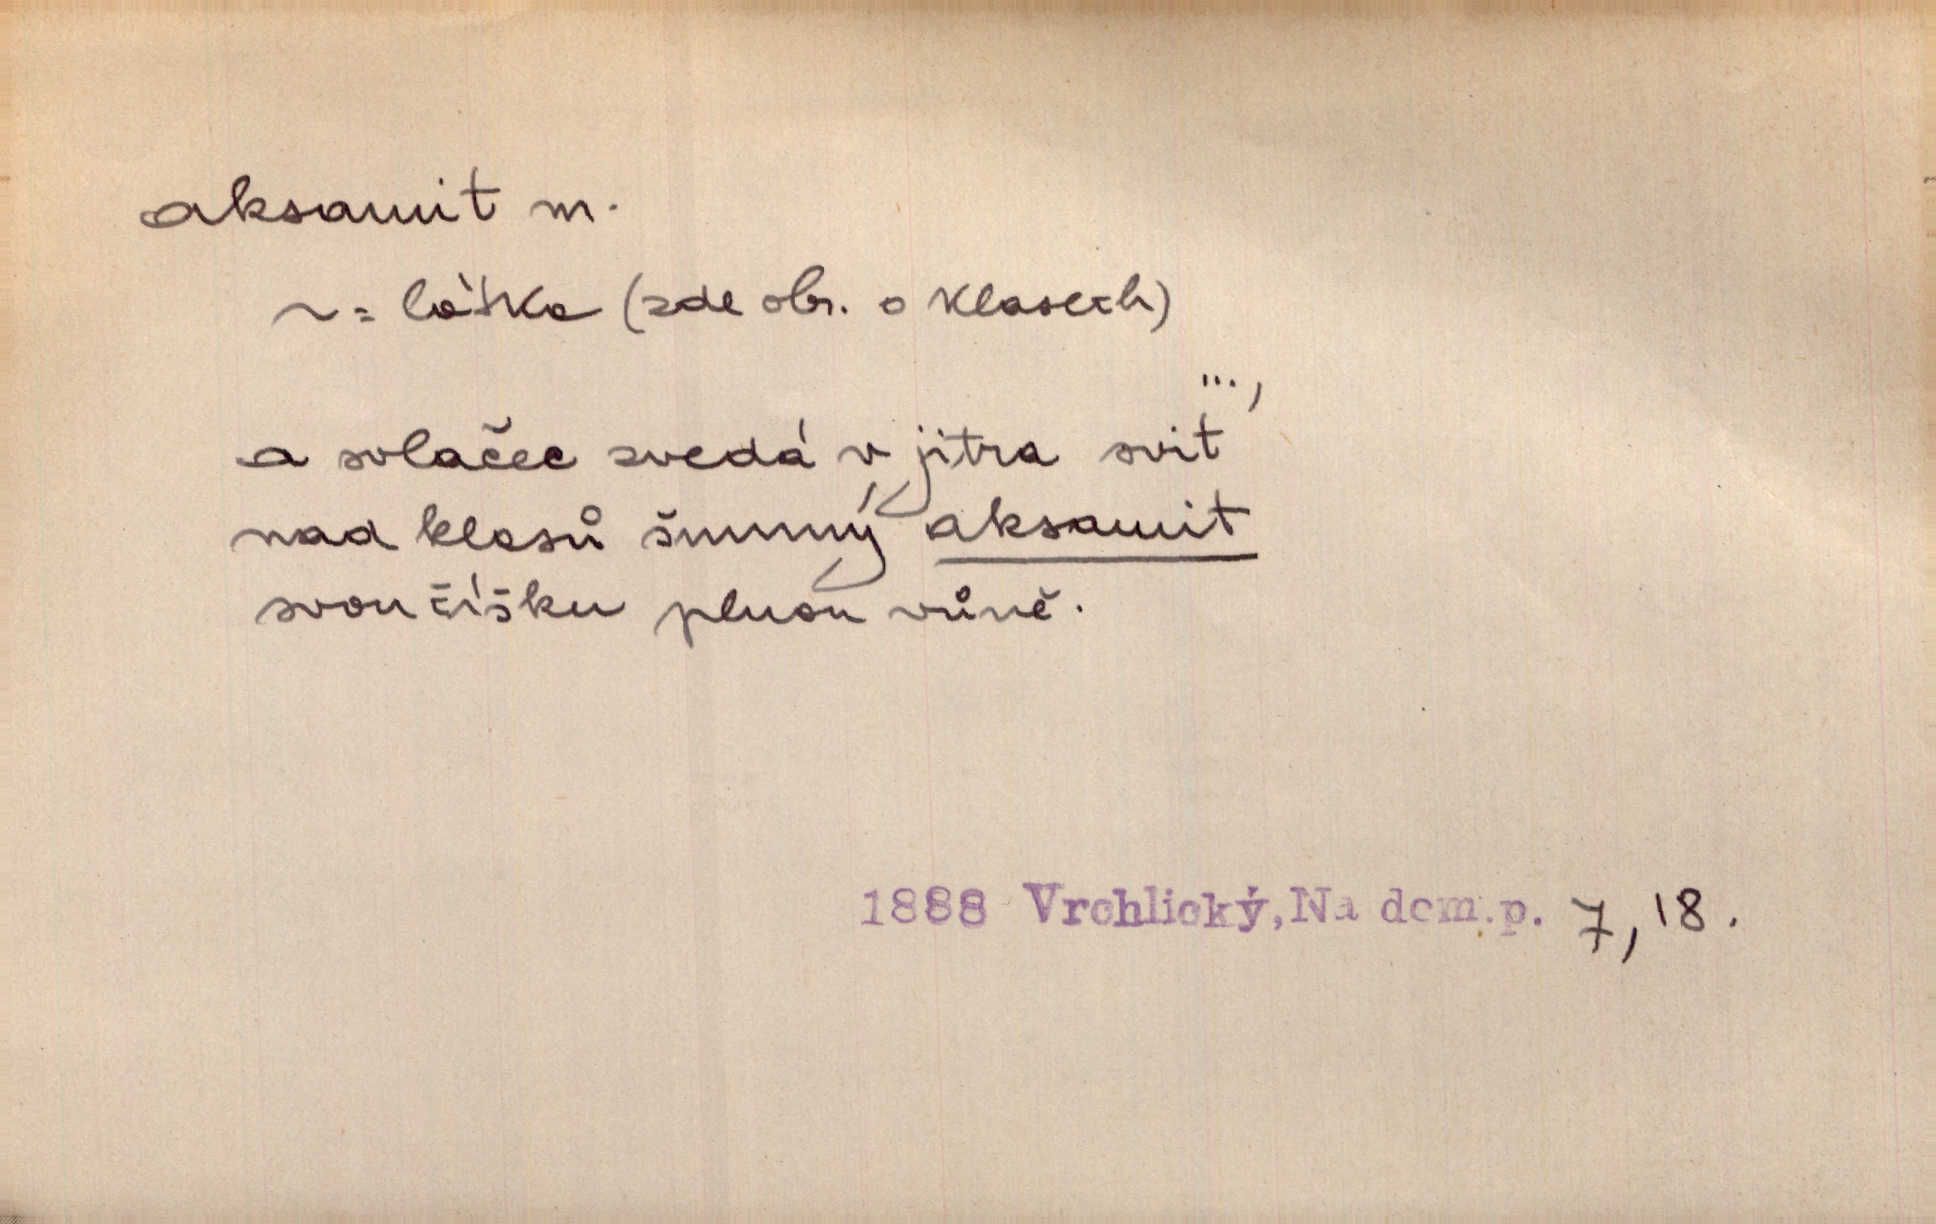 aksamit m.
~ = látka (zde obr. o klasech)
...,
a svlačec zvedá v jitra svit
nad klasů šumný aksamit
svou číšku plnou vůně.
1888 Vrchlický, Na dom.p. 7, 18.